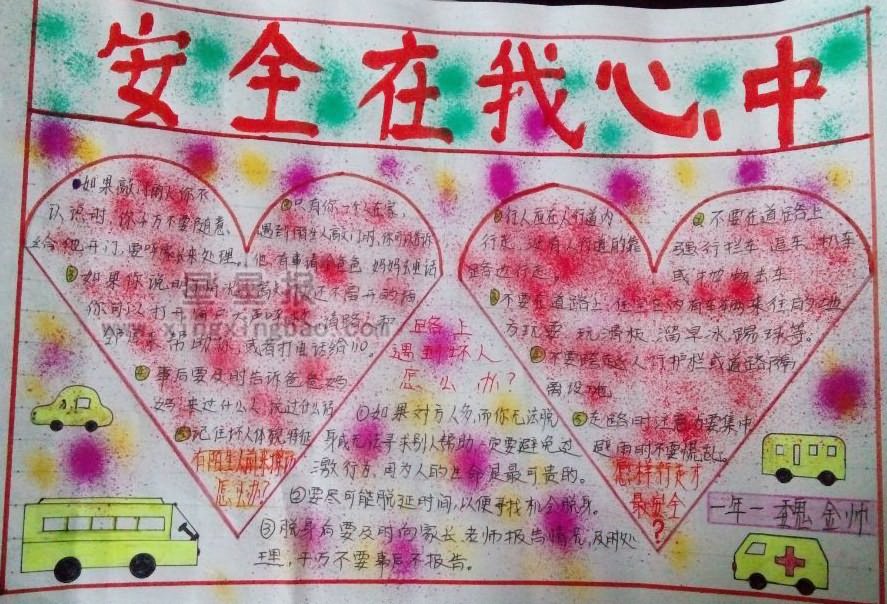 安全在我心中
●如果敲门的人你不
认识时,你千万不要随意
给他开门,要呼家长来处理。
②只有你一个人在家,
遇到陌生人敲门时,你可告诉
他,有事请给爸爸、妈妈去电话
③如果你说明情况 还不离开的话
你可以打开窗户大声呼救,请路人和
邻居来帮助你,或者打电话给110。
④事后要及时告诉爸爸妈
妈,来过什么人,说过什么话
⑤记住坏人体貌特征
有陌生人前来
怎么办?
星星报
www.xingxingbao.com
路上
遇到坏人
怎么办?
①如果对方人多,而你无法脱
身或无法寻求别人帮助一定要避免过
激行为,因为人的生命是最可贵的。
②要尽可能脱延时间,以便寻找机会脱身。
③脱身后要及时向家长、老师报告情况,及时处
理,千万不要事后不报告。
①行人应在人行道内
行走,没有人行道的靠
路边行走;
②不要在道路上
强行拦车、追车、扒车
或抛物击车
③不要在道路上、住宅区内有车辆来往的地
方玩耍、玩滑板、溜旱冰、踢球等。
④不要跨越人行护栏或道路隔
离设施。
⑤走路时注意力要集中
避雨时不要慌乱。
怎样行走才
最安全
?
一年一 魏金帅